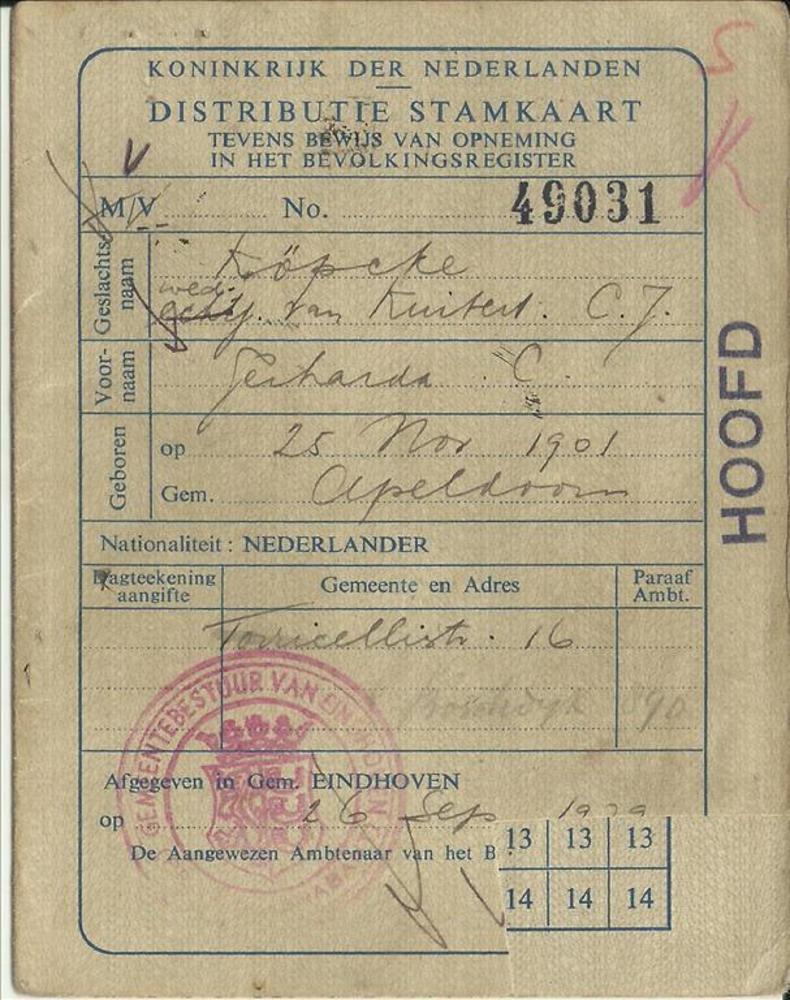 KONINKRIJK DER NEDERLANDEN
DISTRIBUTIE STAMKAART
TEVENS BEWIJS VAN OPNEMING
IN HET BEVOLKINGSREGISTER
V
M/V No. 49031
Geslachtsnaam Köpcke
wed. echtg. van Kuitert. C. J.
Voornaam Gerharda C.
Geboren op 25 Nov 1901
Gem. Apeldoorn
HOOFD
Nationaliteit : NEDERLANDER
Dagteekening aangifte Gemeente en Adres Paraaf Ambt.
Torricellistr. 16
GEMEENTEBESTUUR VAN EINDHOVEN
Afgegeven in Gem. EINDHOVEN
op 26 Sep 1939
De Aangewezen Ambtenaar van het B
13 13 13
14 14 14